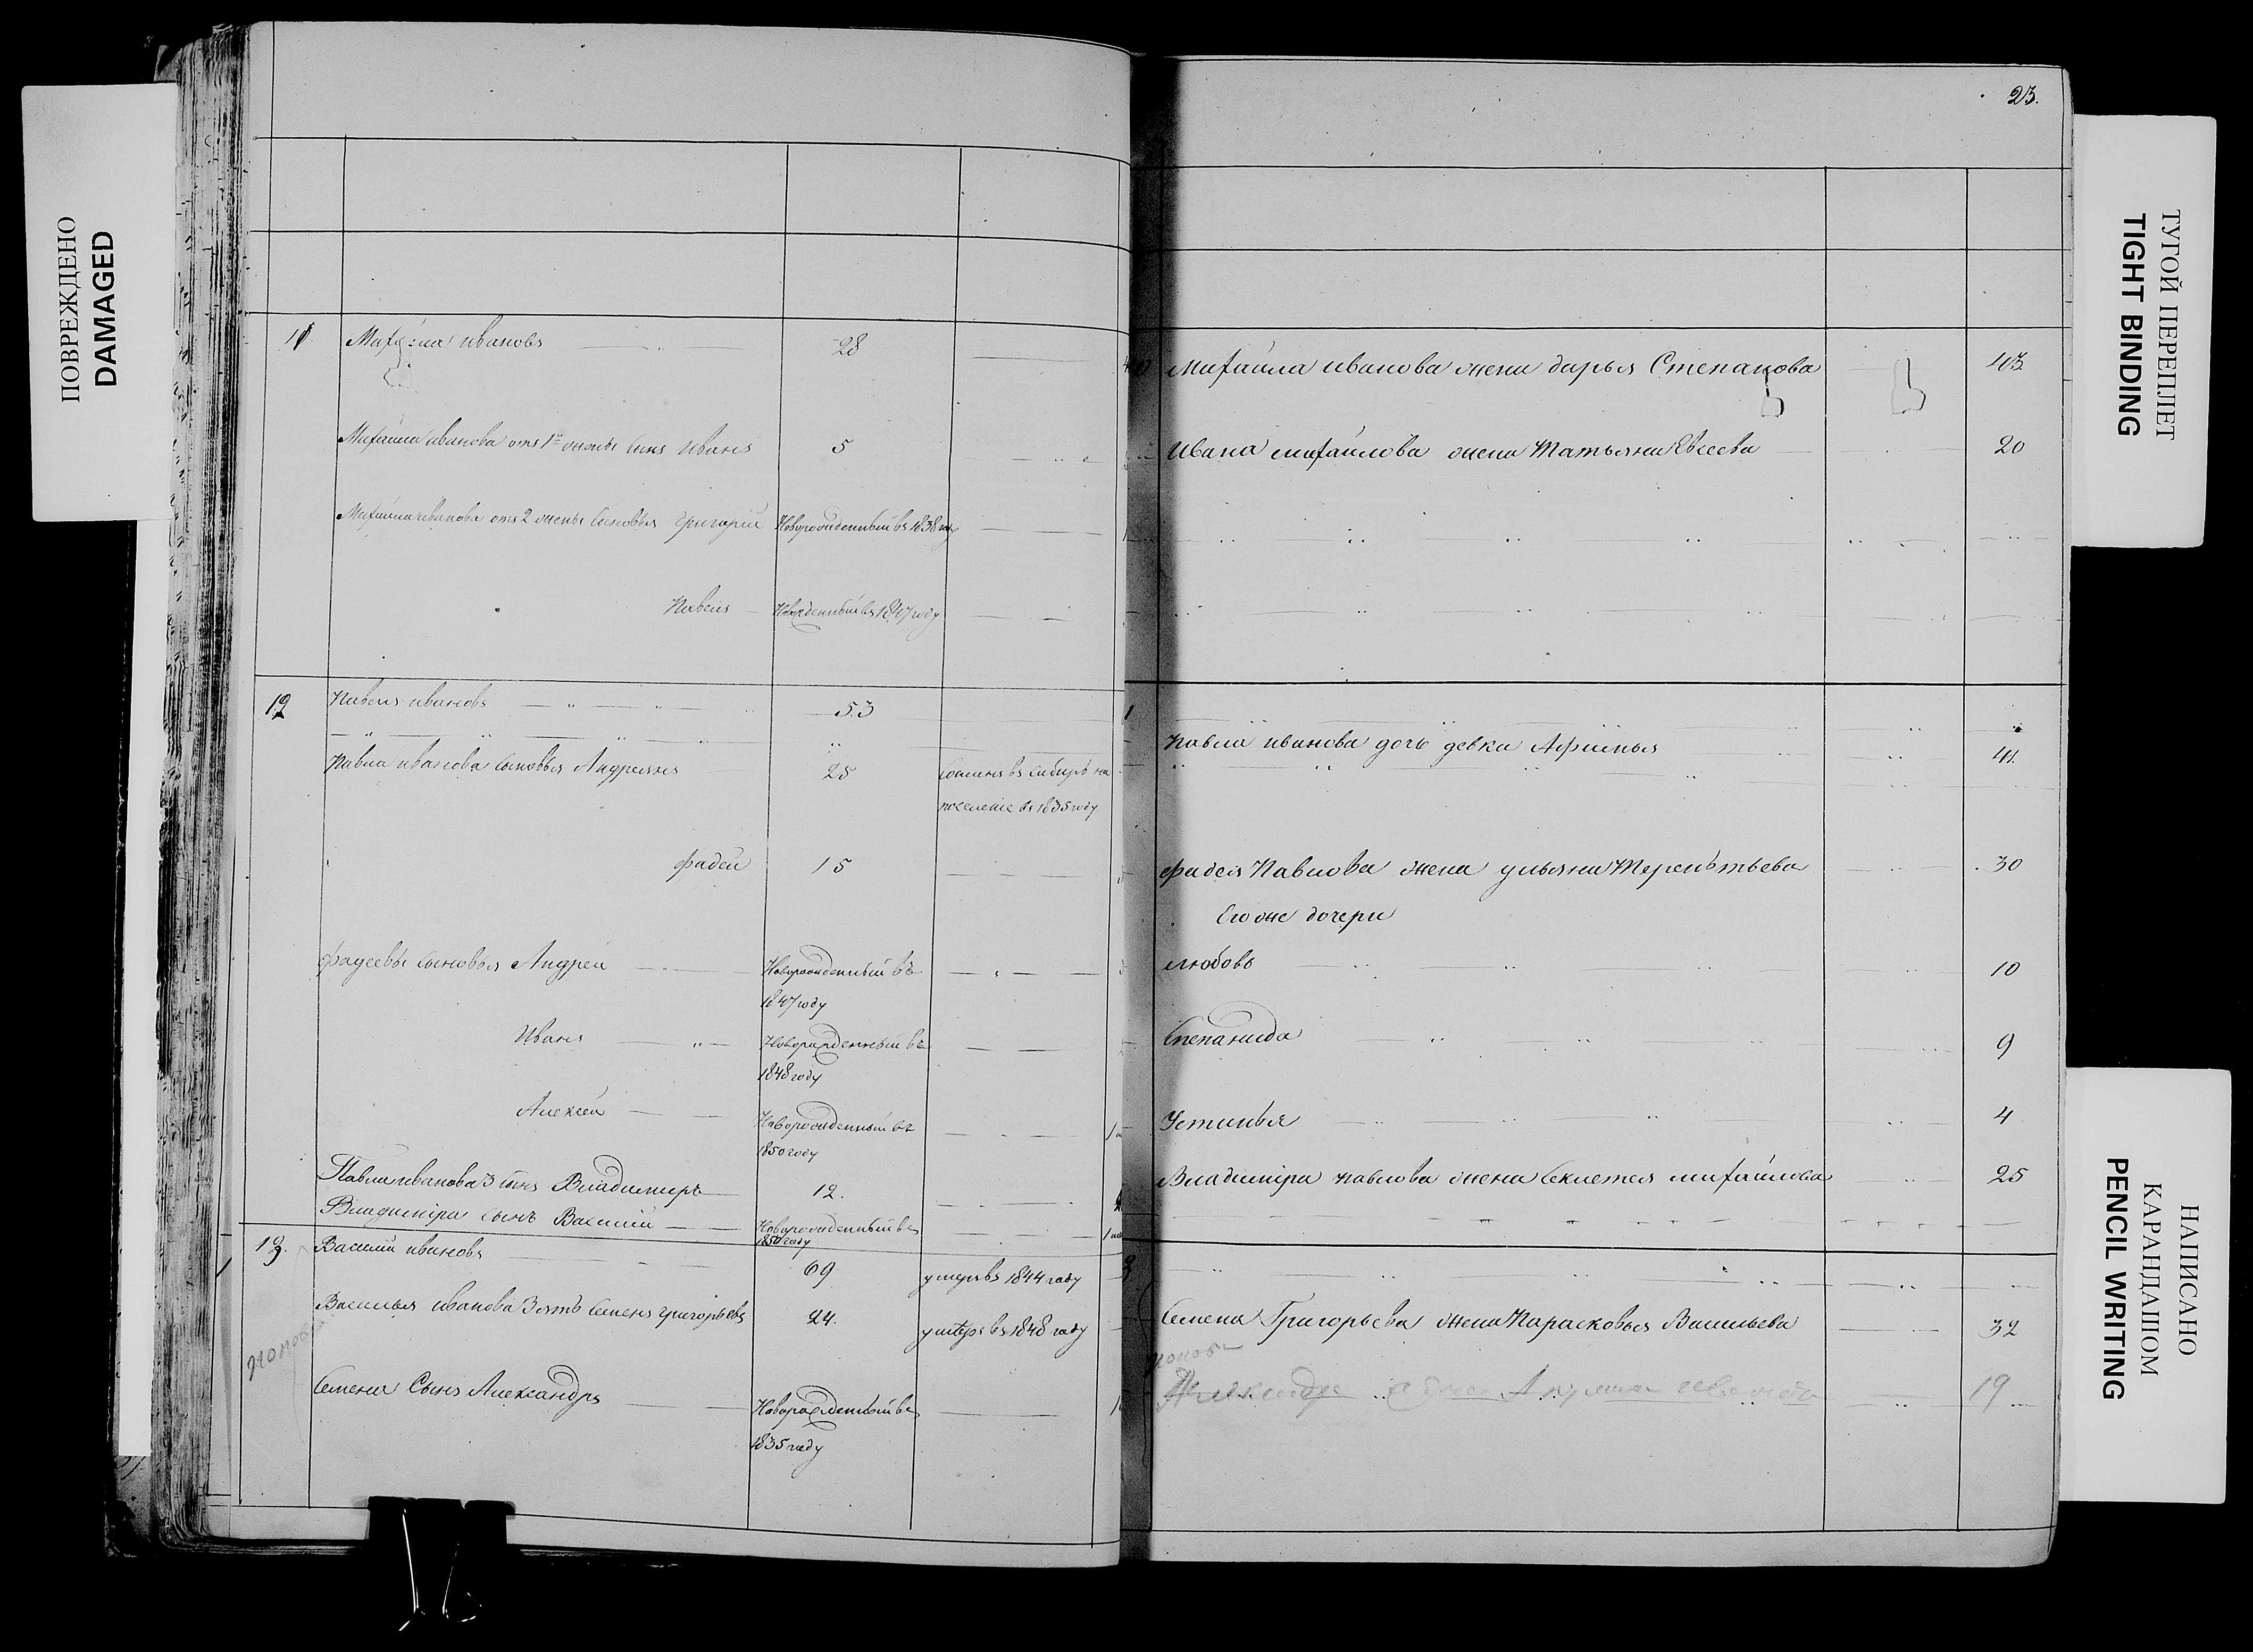 ПОВРЕЖДЕНО
DAMAGED
11. Михайла ивановъ 28
Михайла иванова отъ 1й жены сынъ Иванъ 5
Михайла иванова отъ 2 жены сыновья Григорий Новорожденный въ 1838 году
Павелъ Новорожденный въ 1847 году
12 Павелъ ивановъ 53
Павла иванова сыновья Андреянъ 25 сосланъ въ сибирь на
поселение въ 1835 году
фадей 15
фадеевы сыновья Андрей Новорожденный въ
1847 году
Иванъ Новорожденный въ
1848 году
Алексей Новорожденный въ
1850 году
Павла иванова 3 сынъ Владимиръ 12.
Владимира сынъ Василий Новорожденный въ
1850 году
13. Василий ивановъ 69 умеръ въ 1844 году
Василья иванова Зять Семенъ григорьевъ 24. умеръ въ 1848 году
Семена Сынъ Александръ Новорожденный въ
1835 году
23.
Михайла иванова жена дарья Степанова 43
Ивана михайлова жена Татьяна Евсеева 20
Павла иванова дочь девка Афимья 41.
фадея Павлова жена ульяна Терентьева 30
Его же дочери
любовь 10
Степанида 9
Устинья 4
Владимира павлова жена Секлетея михайлова 25
Семена Григорьева жена Парасковья Васильева 32
Александра жена 19
ТУГОЙ ПЕРЕПЛЕТ
TIGHT BINDING
НАПИСАНО
КАРАНДАШОМ
PENCIL WRITING